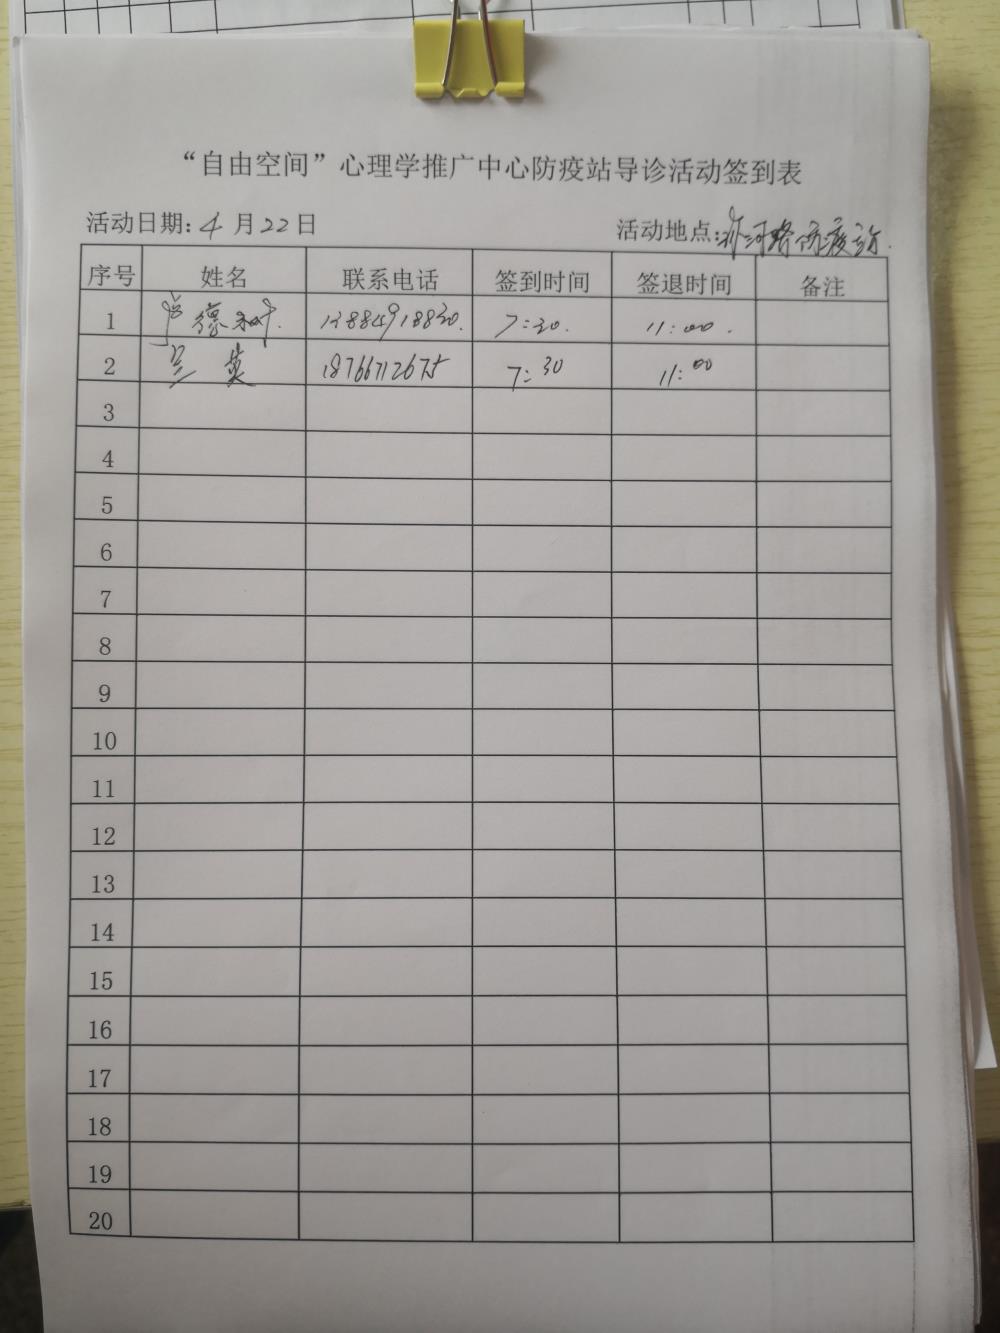 “自由空间”心理学推广中心防疫站导诊活动签到表
活动日期:4月22日 活动地点:河路防疫站.
序号 姓名 联系电话 签到时间 签退时间 备注
1 德 13884918830. 7:30. 11:00.
2 兰英 18766712675 7:30 11:00
3
4
5
6
7
8
9
10
11
12
13
14
15
16
17
18
19
20